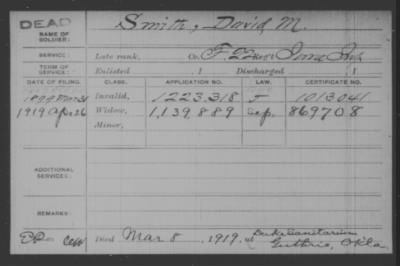 DEAD
NAME OF SOLDIER: Smith, David M.
SERVICE: Late rank, Co. F. Iowa Inf.
TERM OF SERVICE: Enlisted 1 Discharged 1
DATE OF FILING. CLASS. APPLICATION NO. LAW. CERTIFICATE NO.
1899 Mar 31 Invalid, 1223.318 1013041
1919 Apr 26 Widow, 1,139,889 869708
Minor,
ADDITIONAL SERVICES:
REMARKS:
Died Mar 8, 1919, at Sanitarium
Guthrie, Okla.